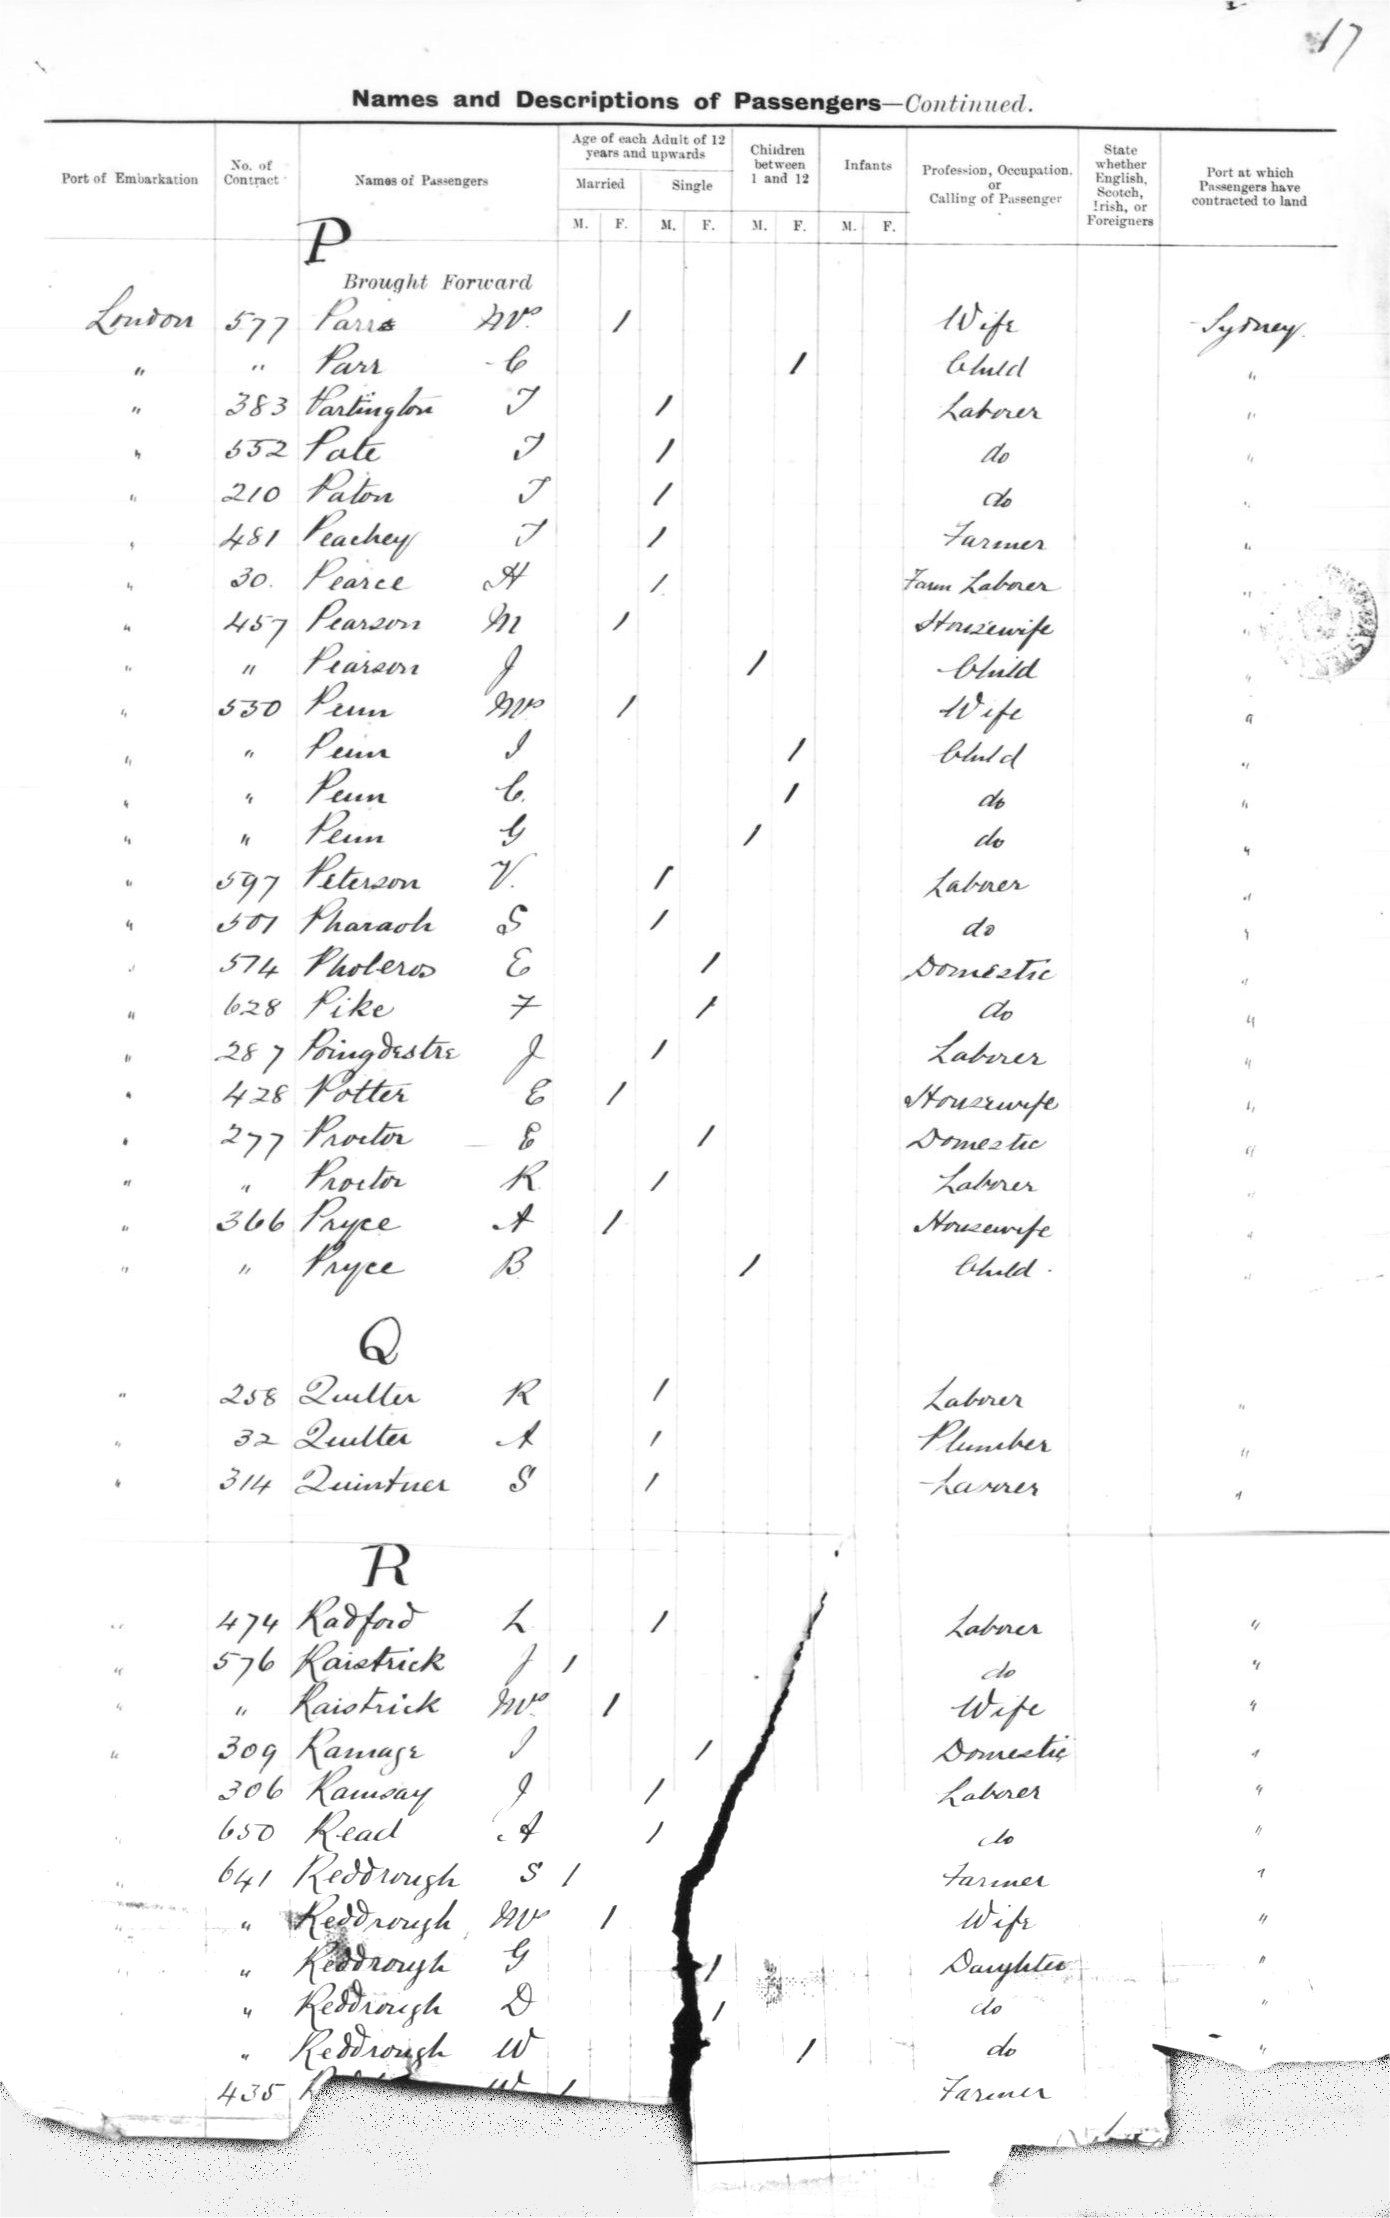 17
Names and Descriptions of Passengers—Continued.
Port of Embarkation No. of Contract Names of Passengers Age of each Adult of 12 years and upwards Married Single M. F. M. F. Children between 1 and 12 M. F. Infants M. F. Profession, Occupation, or Calling of Passenger State whether English, Scotch, Irish, or Foreigners Port at which Passengers have contracted to land
P
Brought Forward
London 577 Parr Mrs 1 Wife Sydney.
" " Parr C 1 Child "
" 383 Partington T 1 Laborer "
" 552 Pate T 1 do "
" 210 Paton T 1 do "
" 481 Peachey T 1 Farmer "
" 30. Pearce H 1 Farm Laborer "
" 457 Pearson M 1 Housewife "
" " Pearson J 1 Child "
" 550 Penn Mrs 1 Wife "
" " Penn I 1 Child "
" " Penn C. 1 do "
" " Penn G 1 do "
" 597 Peterson V. 1 Laborer "
" 501 Pharaoh S 1 do "
" 514 Pholeros E 1 Domestic "
" 628 Pike F 1 do "
" 287 Poingdestre J 1 Laborer "
" 428 Potter E 1 Housewife "
" 277 Proctor E 1 Domestic "
" " Proctor R 1 Laborer "
" 366 Pryce A 1 Housewife "
" " Pryce B 1 Child "
Q
" 258 Quilter R 1 Laborer "
" 32 Quilter A 1 Plumber "
" 314 Quintner S 1 Laborer "
R
" 474 Radford L 1 Laborer "
" 576 Raistrick J 1 do "
" " Raistrick Mrs 1 Wife "
" 309 Ramage I 1 Domestic "
306 Ramsay J 1 Laborer "
" 650 Read A 1 do "
" 641 Reddrough S 1 Farmer "
" " Reddrough Mrs 1 Wife "
" " Reddrough G 1 Daughter "
" Reddrough D 1 do "
" Reddrough W 1 do "
435 W 1 Farmer